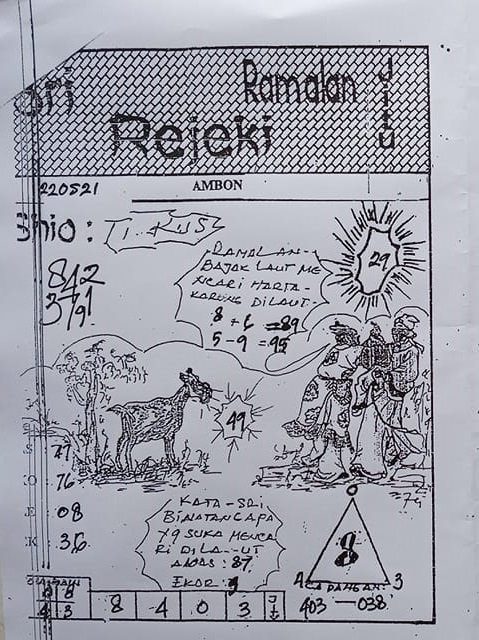 Ramalan
Jitu
Rejeki
220521
AMBON
Shio : TIKUS
842
3791
29
RAMALAN
BAJAK LAUT ME
NCARI HARTA
KARUNG DILAUT
8 + 6 = 89
5 - 9 = 95
49
77
76
08
36
79
KATA-SRI
BINATANG APA
YG SUKA MENCA
RI DILA--UT
ANGS : 87
EKOR : 9
0
8
4 3
CADANGAN
403 — 038
8 4 0 3